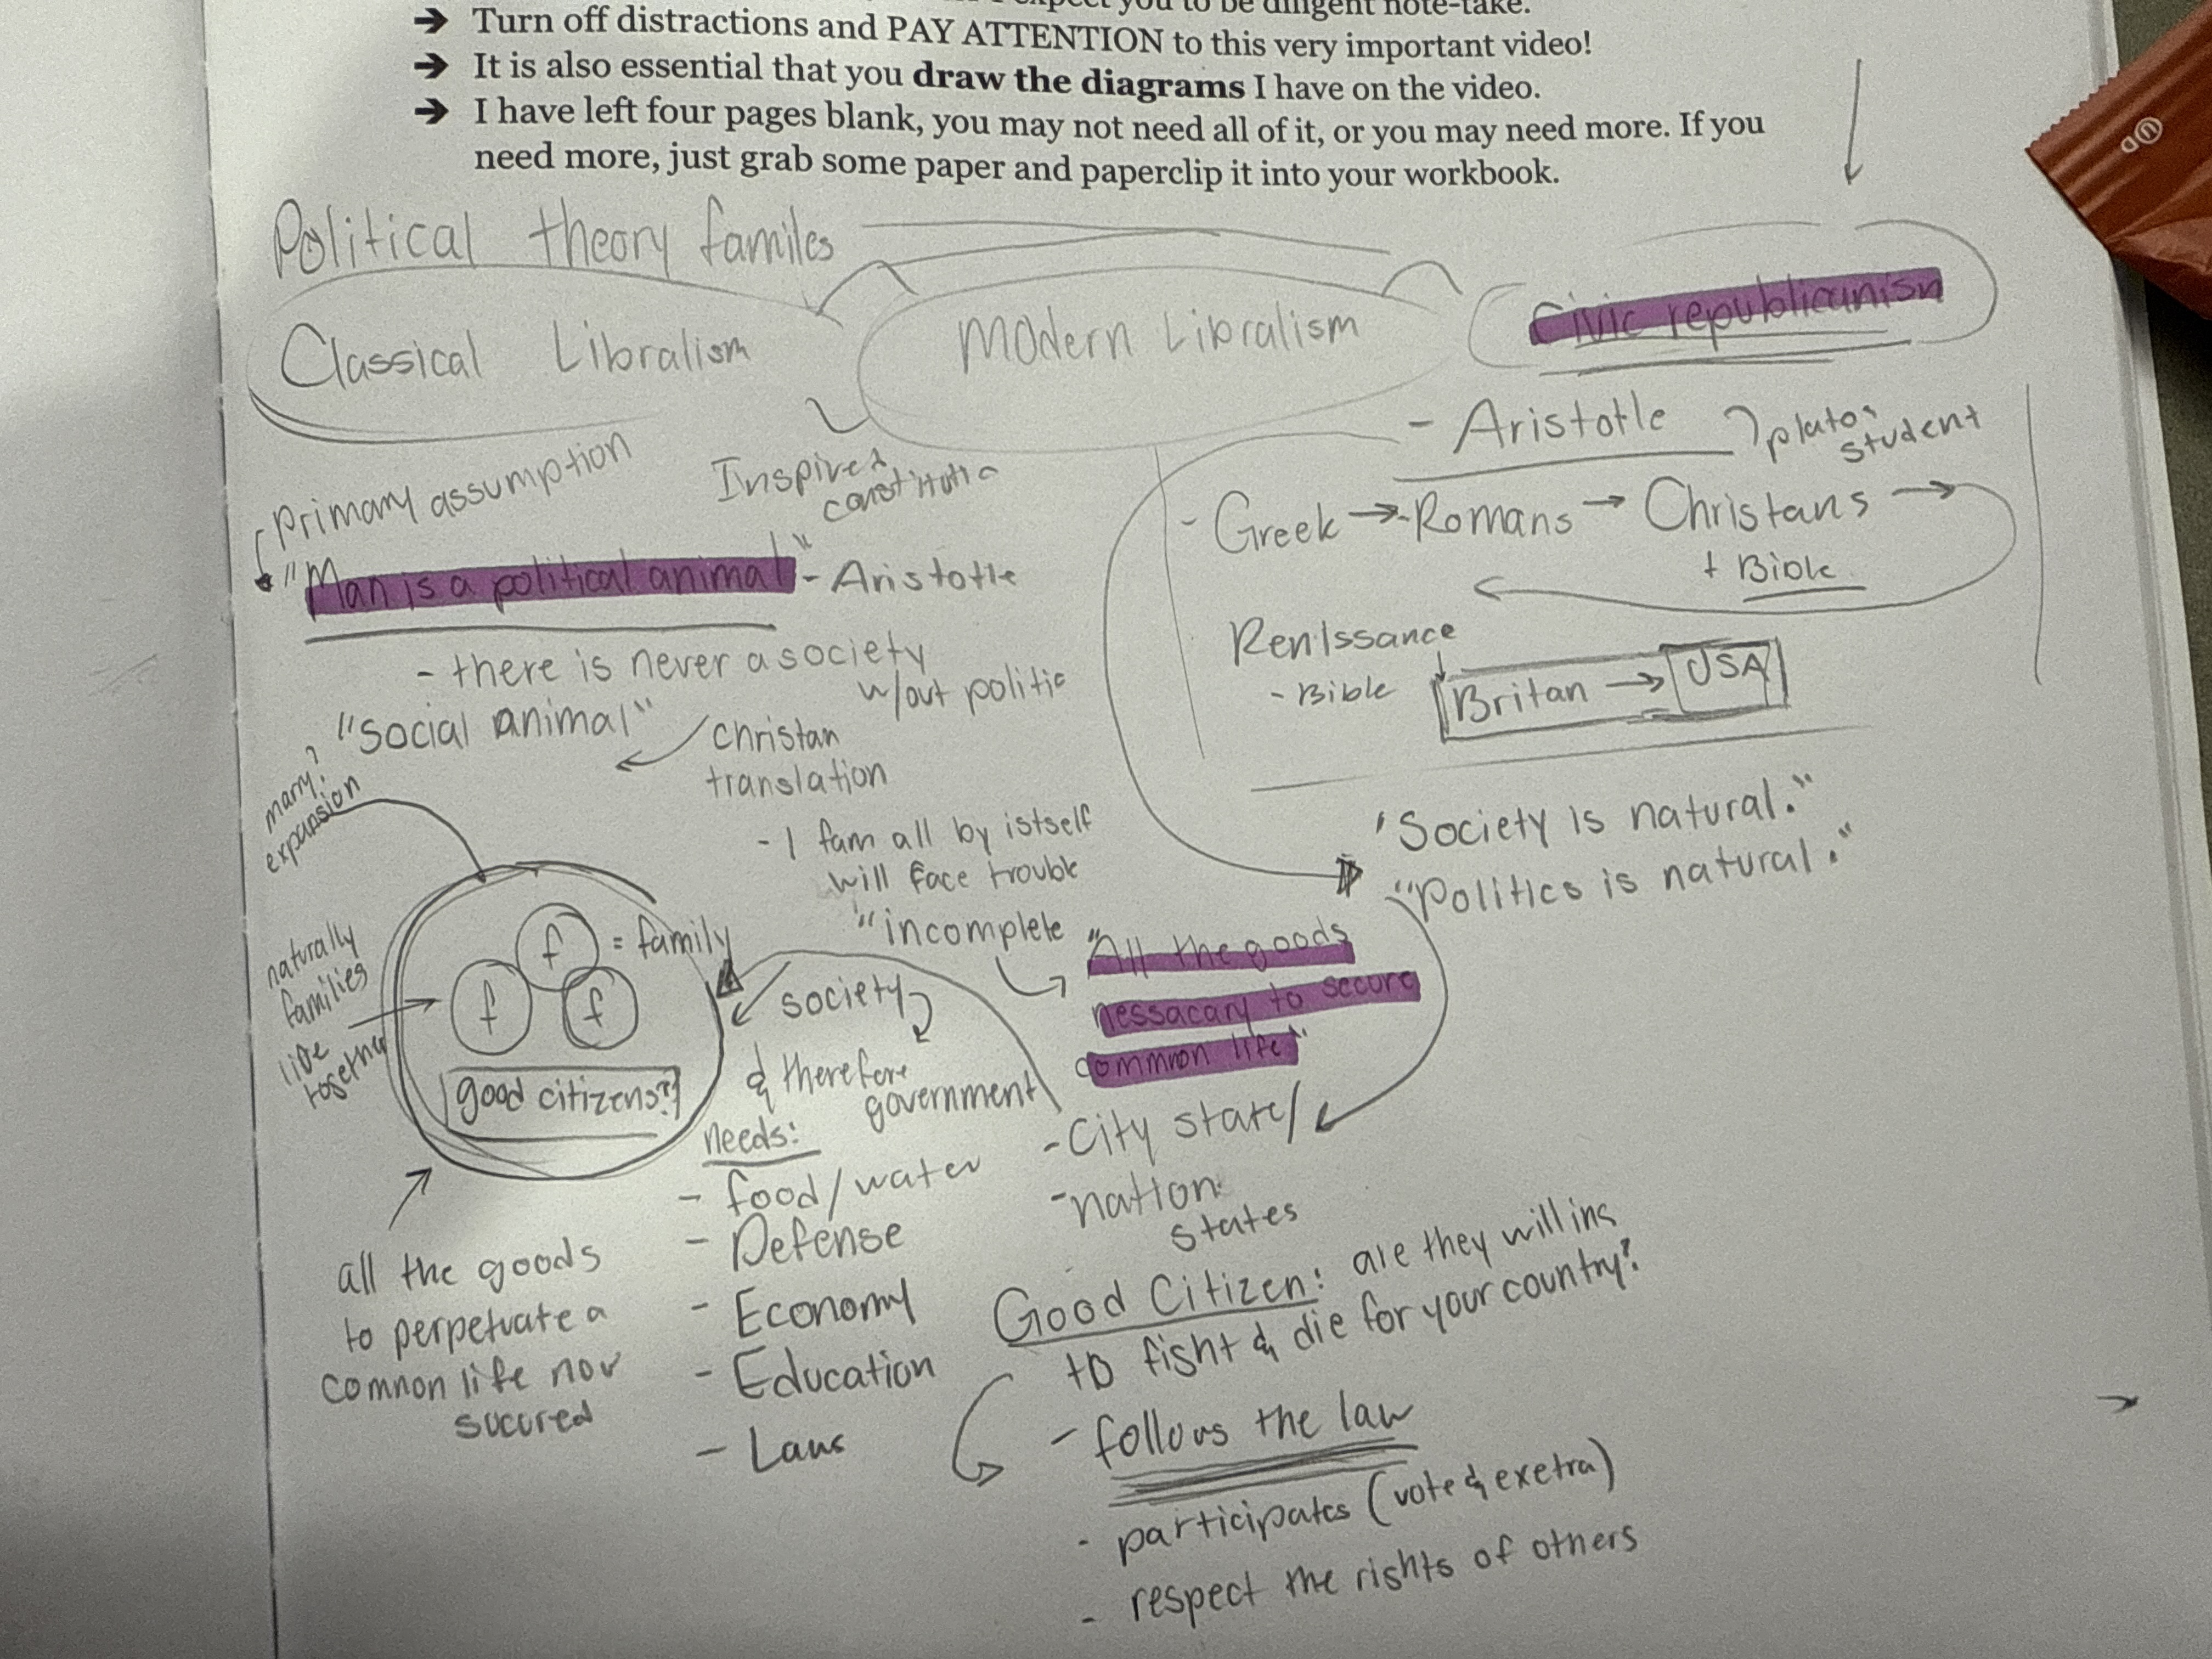 expect you to be diligent note-take.
➔ Turn off distractions and PAY ATTENTION to this very important video!
➔ It is also essential that you draw the diagrams I have on the video.
➔ I have left four pages blank, you may not need all of it, or you may need more. If you
need more, just grab some paper and paperclip it into your workbook.
Political theory familes
Classical Libralism
Modern Libralism
Civic republicanism
- Aristotle
plato's
student
- Greek → Romans → Christans →
+ Bible
Renissance
- Bible
Britan → USA
Primary assumption
Inspired
constitutio
"Man is a political animal" - Aristotle
- there is never a society
w/out politic
"Social animal"
christan
translation
marry?
expansion
- 1 fam all by istself
will face trouble
"incomplete
"Society is natural."
"Politics is natural."
naturally
families
live
together
f = family
f
f
good citizens?
society
& therefore
government
"All the goods
nessacary to secure
common life"
- City state/
- nation
states
all the goods
to perpetuate a
common life nov
sucured
needs:
- food/water
- Defense
- Economy
- Education
- Laws
Good Citizen: are they willing
to fight & die for your country?
- follows the law
- participates (vote & exetra)
- respect the rights of others